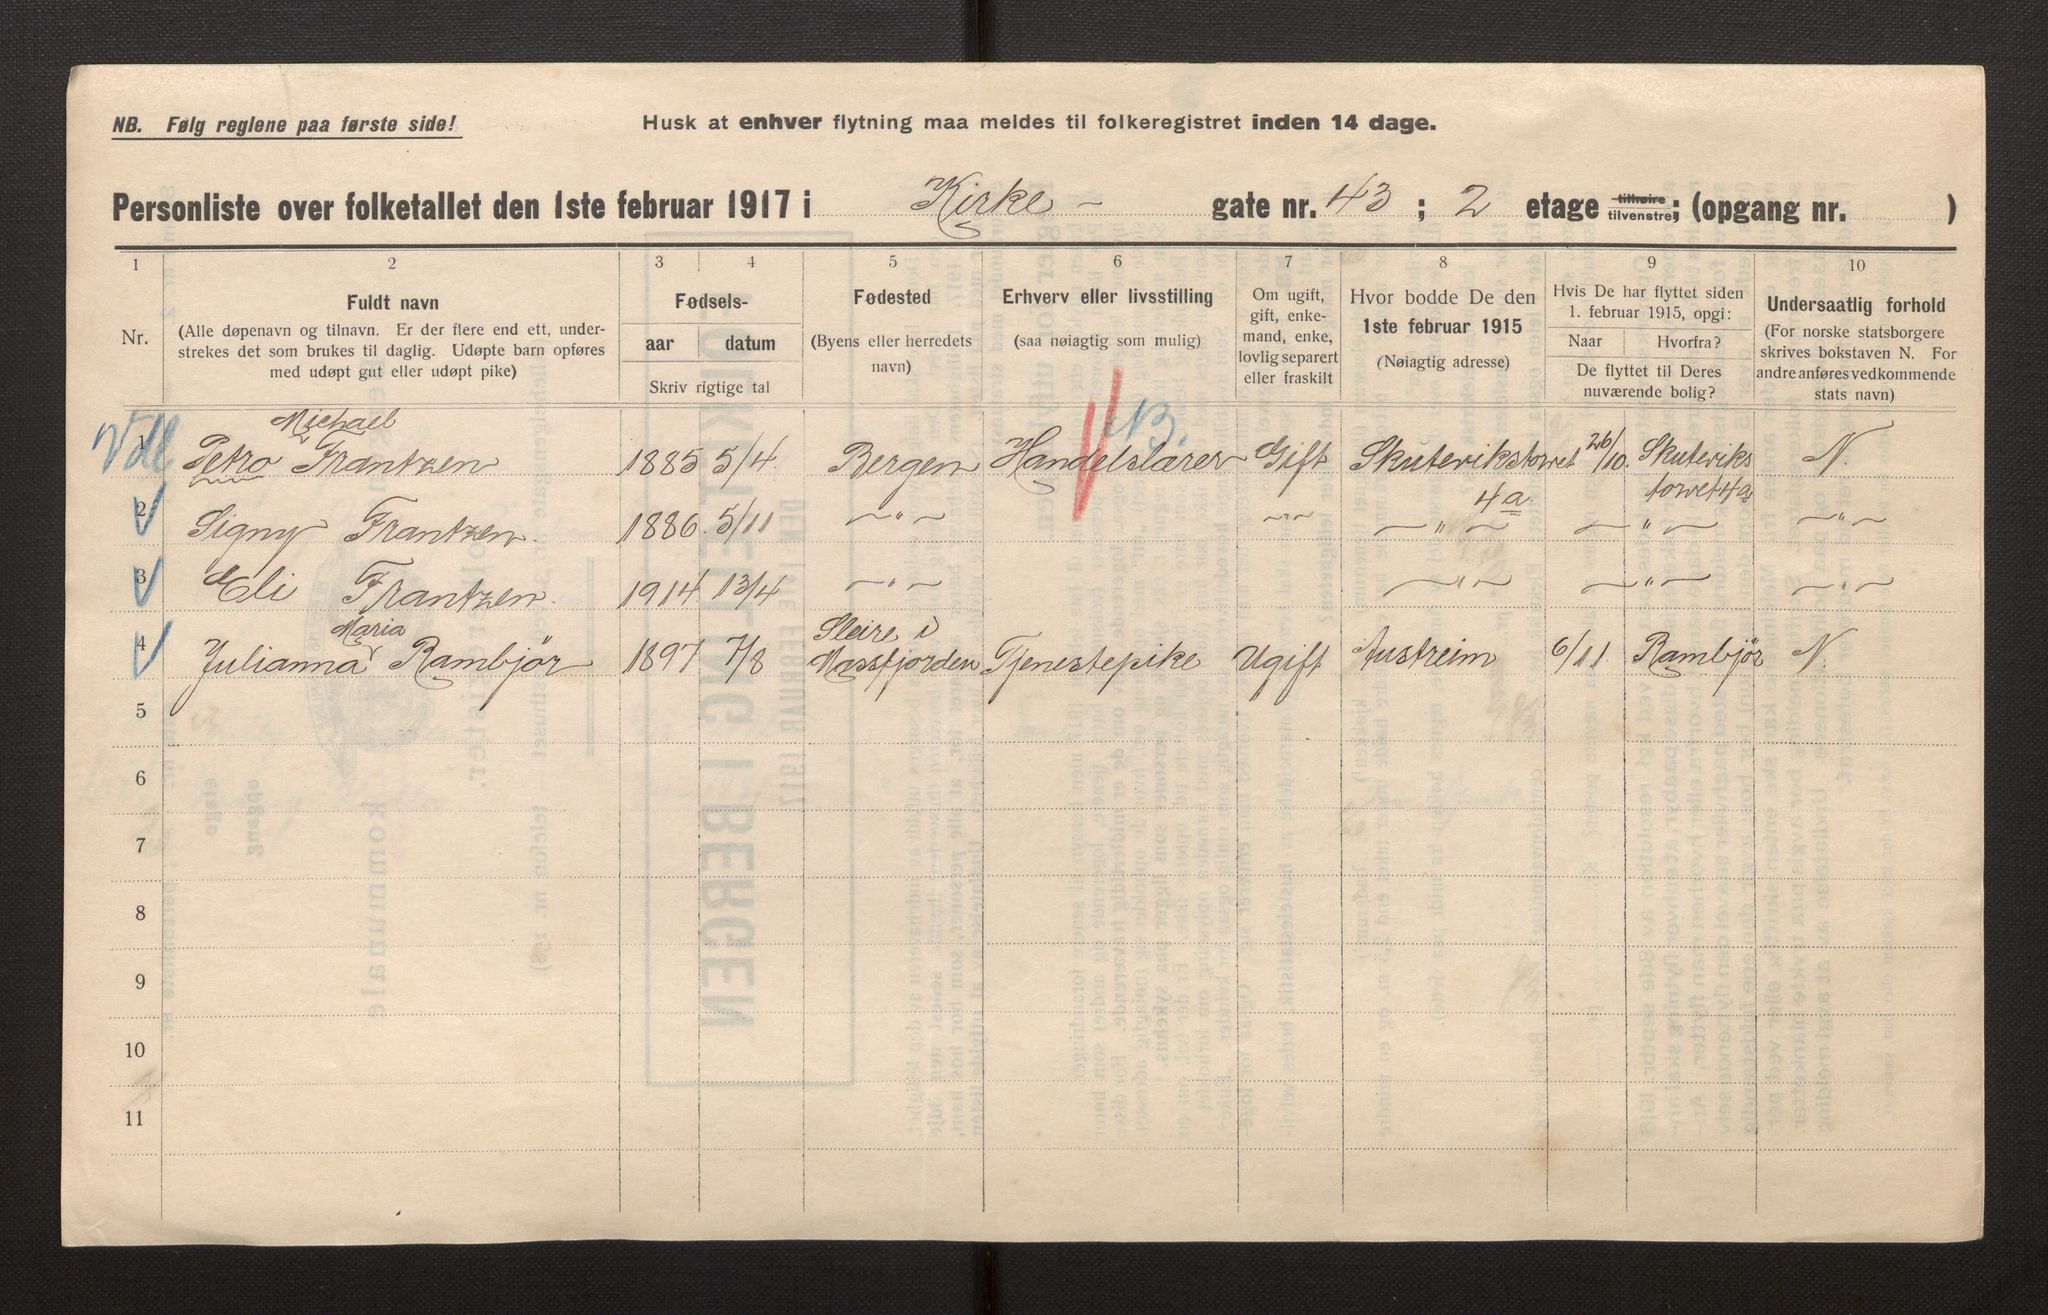 NB. Følg reglene paa første side!
Husk at enhver flytning maa meldes til folkeregistret inden 14 dage.
Personliste over folketallet den 1ste februar 1917 i Kirke - gate nr. 43 ; 2 etage tilhøire tilvenstre; (opgang nr. )
1 2 3 4 5 6 7 8 9 10
Nr.
Fuldt navn
(Alle døpenavn og tilnavn. Er der flere end ett, under-
strekes det som brukes til daglig. Udøpte barn opføres
med udøpt gut eller udøpt pike)
Fødsels-
aar datum
Skriv rigtige tal
Fødested
(Byens eller herredets
navn)
Erhverv eller livsstilling
(saa nøiagtig som mulig)
Om ugift,
gift, enke-
mand, enke,
lovlig separert
eller fraskilt
Hvor bodde De den
1ste februar 1915
(Nøiagtig adresse)
Hvis De har flyttet siden
1. februar 1915, opgi:
Naar Hvorfra?
De flyttet til Deres
nuværende bolig?
Undersaatlig forhold
(For norske statsborgere
skrives bokstaven N. For
andre anføres vedkommende
stats navn)
Michael
1 Petro Frantzen 1885 5/4 Bergen Handelslærer Gift Skuterikstorvet 26/10. Skuteviks N.
NB.
4a. torvet 4a
2 Signy Frantzen. 1886. 5/11 -"- -"- -"- - "- -"-
3 Eli Frantzen. 1914. 13/4 -"- -"- -"- -"-
Maria Sleire i
4 Julianna Rambjør 1897 7/8 Massfjorden Tjenestepike Ugift Austreim 6/11 Rambjør N.
5
6
7
8
9
10
11